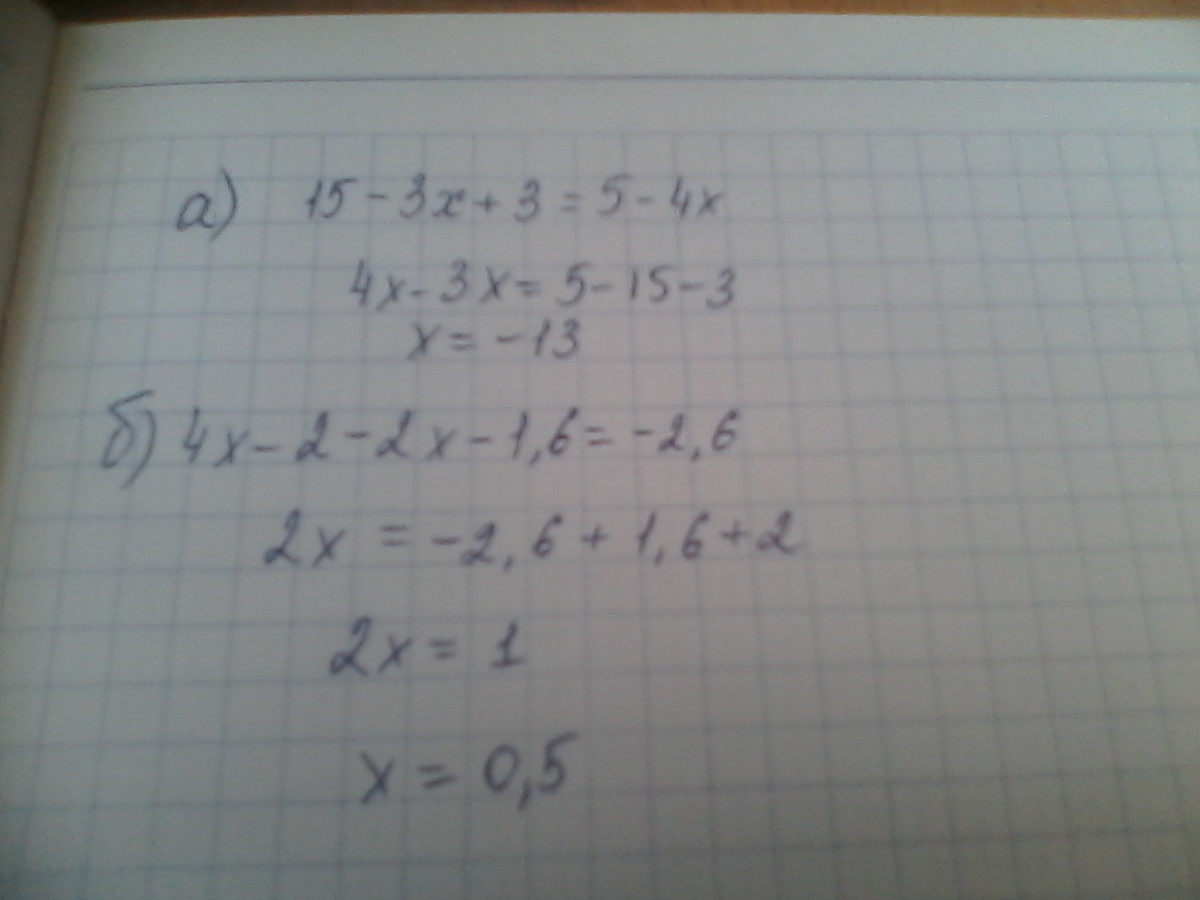 а) 15 - 3x + 3 = 5 - 4x
4x - 3x = 5 - 15 - 3
x = -13
б) 4x - 2 - 2x - 1,6 = -2,6
2x = -2,6 + 1,6 + 2
2x = 1
x = 0,5